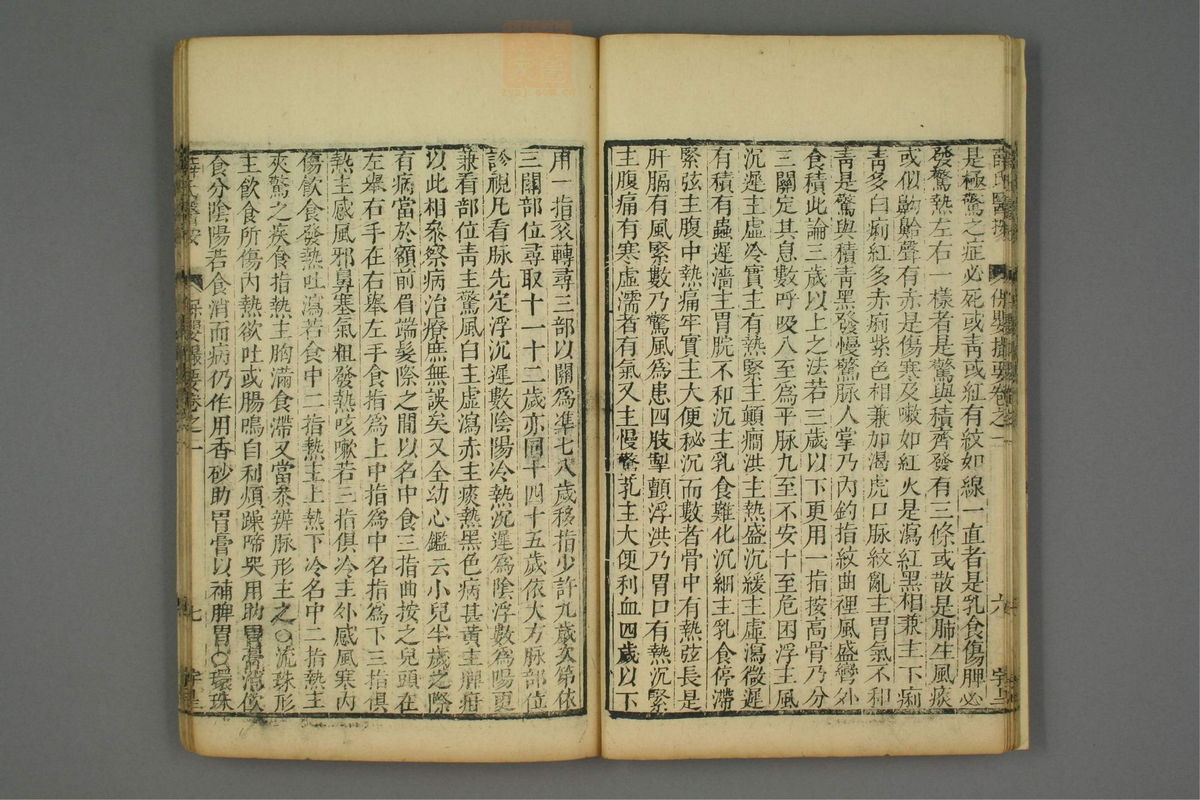 薛氏醫按 保嬰撮要卷之一 六
是極驚之症必死或青或紅有紋如線一直者是乳食傷脾必
發驚熱左右一樣者是驚與積齊發有三條或散是肺生風痰
或似齁䶎聲有赤是傷寒及嗽如紅火是瀉紅黑相兼主下痢
青多白痢紅多赤痢紫色相兼加渴虎口脉紋亂主胃氣不和
青是驚與積青黑發慢驚脉入掌乃內釣指紋曲裡風盛彎外
食積此論三歲以上之法若三歲以下更用一指按高骨乃分
三關定其息數呼吸八至爲平脉九至不安十至危困浮主風
沉遲主虛冷實主有熱緊主顛癎洪主熱盛沉緩主虛瀉微遲
有積有蟲遲濇主胃脘不和沉主乳食難化沉細主乳食停滯
緊弦主腹中熱痛牢實主大便秘沉而數者骨中有熱弦長是
肝膈有風緊數乃驚風爲患四肢掣顫浮洪乃胃口有熱沉緊
主腹痛有寒虛濡者有氣又主慢驚芤主大便利血四歲以下
用一指衮轉尋三部以關爲準七八歲移指少許九歲次第依
三關部位尋取十一十二歲亦同十四十五歲依大方脉部位
診視凡看脉先定浮沉遲數陰陽冷熱沉遲爲陰浮數爲陽更
兼看部位青主驚風白主虛瀉赤主痰熱黑色病甚黃主脾疳
以此相叅察病治療庶無誤矣又全幼心鑑云小兒半歲之際
有病當於額前眉端髮際之間以名中食三指曲按之兒頭在
左舉右手在右舉左手食指爲上中指爲中名指爲下三指俱
熱主感風邪鼻塞氣粗發熱咳嗽若三指俱冷主外感風寒內
傷飲食發熱吐瀉若食中二指熱主上熱下冷名中二指熱主
夾驚之疾食指熱主胸滿食滯又當叅辨脉形主之○流珠形
主飲食所傷內熱欲吐或腸鳴自利煩躁啼哭用助胃膏消飲
食分陰陽若食消而病仍作用香砂助胃膏以補脾胃○環珠
薛氏醫按 保嬰撮要卷之一 七